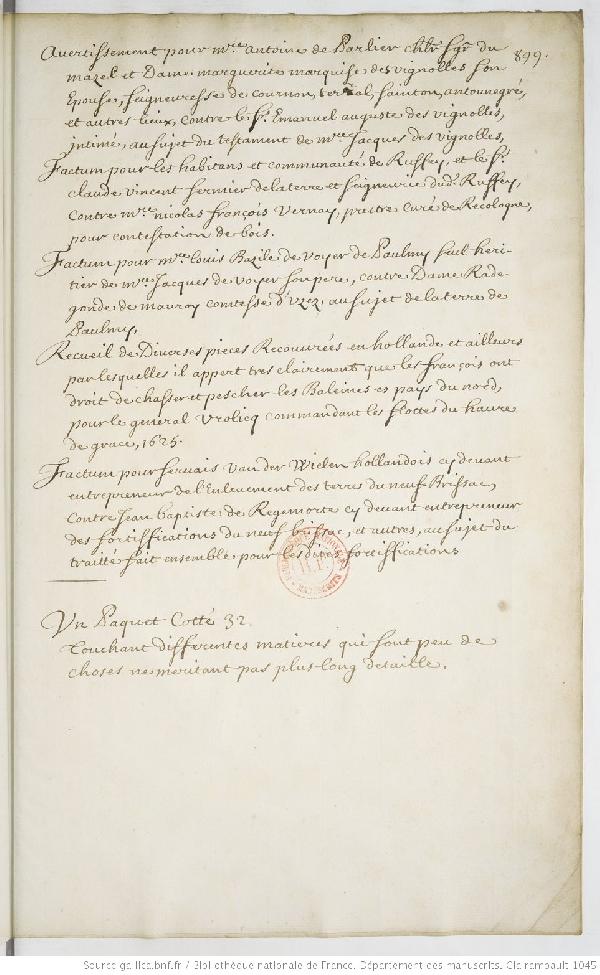 899.
Avertissement pour mre. antoine de Parlier chlr. sgr. du
mazel et Dame marguerite marquise des vignolles son
Epouse, seigneuresse de cournon, tertal, sainton, antounegré,
et autres lieux, contre le sr. Emanuel auguste des vignolles,
intimé, au sujet du testament de mre. Jacques des vignolles,
Factum pour les habitans et communauté de Ruffey, et le sr.
claude vincent fermier de la terre et seigneurie dud. Ruffey,
contre mre. nicolas françois Vernoy, prestre Curé de Recologne,
pour contestation de bois.
Factum pour mre. louis Bazile de voyer de Paulmy seul heri-
tier de mre. Jacques de voyer son pere, contre Dame Rade-
gonde de mauroy comtesse d'Uzez, au sujet de la terre de
Paulmy,
Recueil de Diverses pieces Recouvrées en hollande et ailleurs
par lesquelles il appert tres clairement que les françois ont
droit de chasser et pescher les Baleines es pays du nord,
pour le general Vrolicq commandant les flottes du havre
de grace, 1625.
Factum pour servais Van der Wielen hollandois cy devant
entrepreneur de l'Enlevement des terres du neuf Brissac,
Contre Jean baptiste de Regemorte cy devant entrepreneur
des fortiffications du neuf brissac, et autres, au sujet du
traitté fait ensemble pour les dites fortiffications
Un Paquet Cotté 32.
Touchant differentes matieres qui sont peu de
choses ne meritant pas plus long detaille.
MANUSCRITS
Source gallica.bnf.fr / Bibliothèque nationale de France. Département des manuscrits. Clairambault 1045